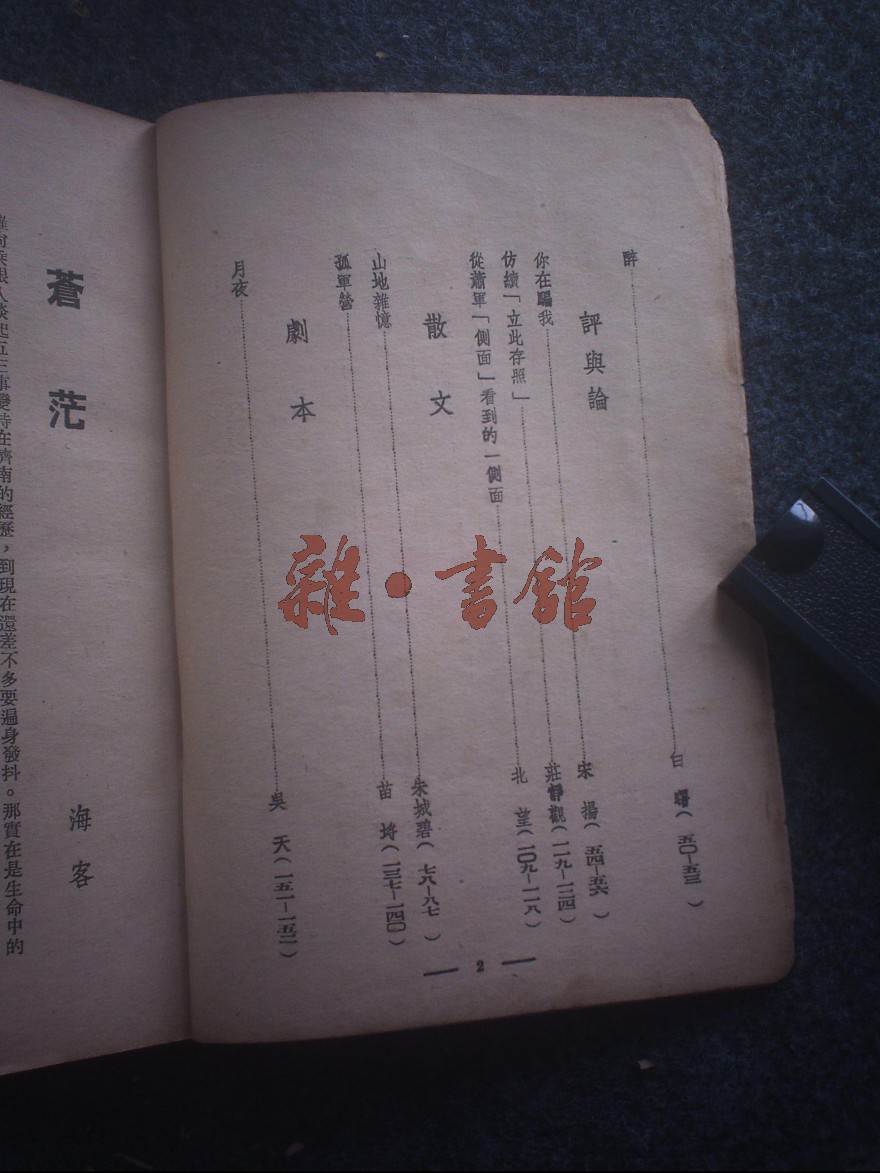 醉……白曙(五〇—五三)
評與論
你在騙我……宋揚(五四—五六)
仿續「立此存照」……莊靜觀(一二九—一三四)
從蕭軍「側面」看到的一側面……北望(一〇九—一一八)
散文
山地雜憶……朱城碧(七八—八七)
孤軍營……苗埓(一三七—一四〇)
劇本
月夜……吳天(一五一—一五二)
— 2 —
蒼茫
海客
五三事變時在濟南的經歷，到現在還差不多要遍身發抖。那實在是生命中的
雜·書館